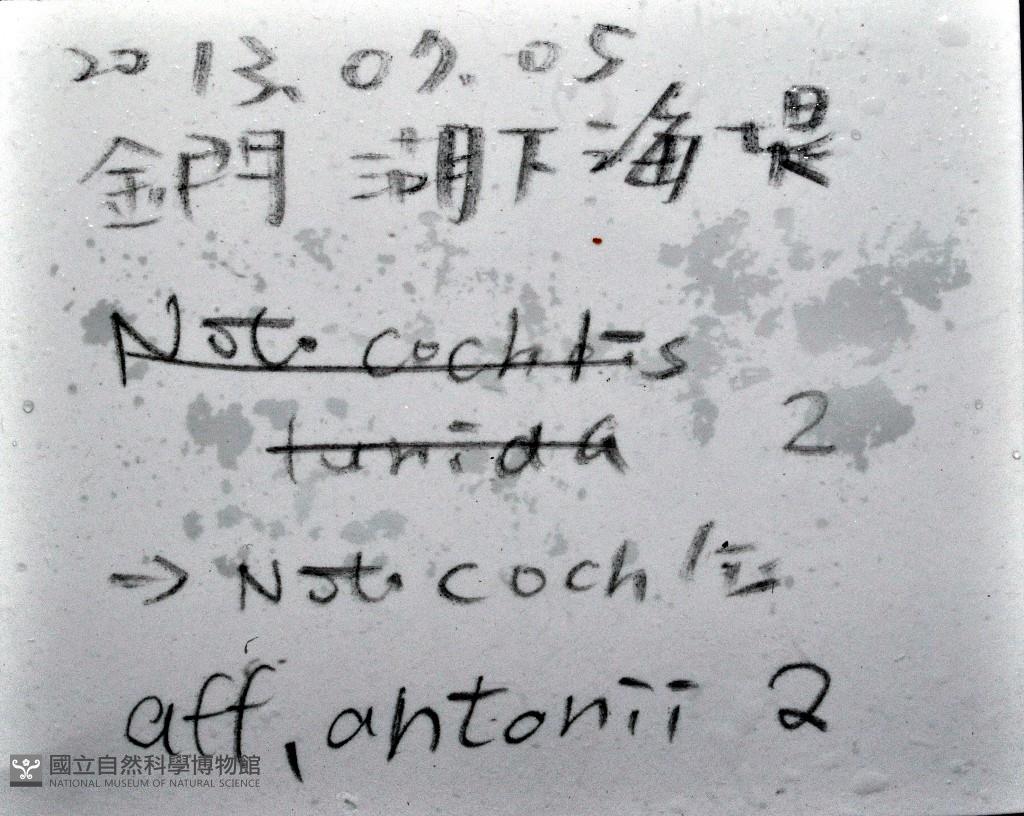 2013.07.05
金門 湖下海堤
Notocochlis
tumida 2
→ Notocochlis
aff. antonii 2
國立自然科學博物館
NATIONAL MUSEUM OF NATURAL SCIENCE